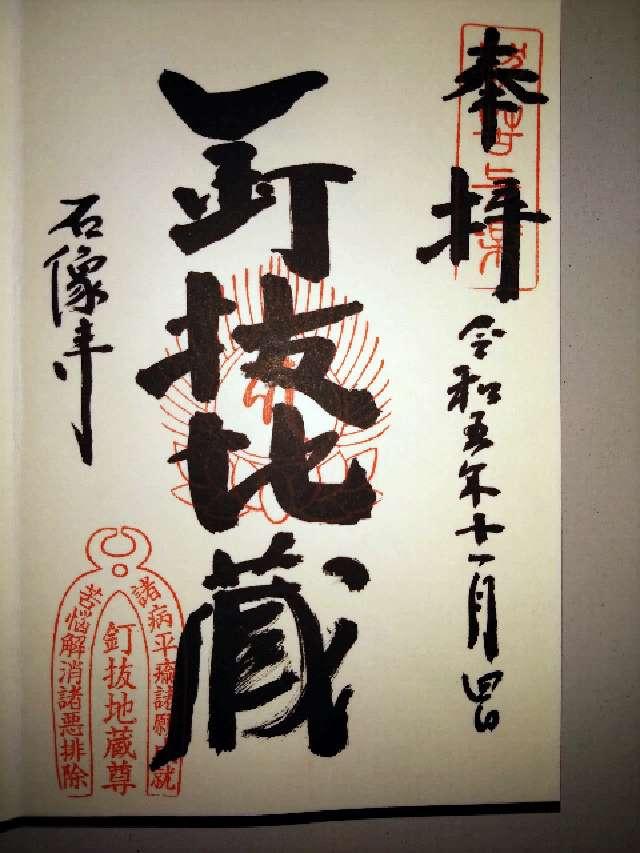 奉拝
令和五年十一月四日
釘抜地蔵
石像寺
諸病平癒諸願成就
釘抜地蔵尊
苦悩解消諸悪排除